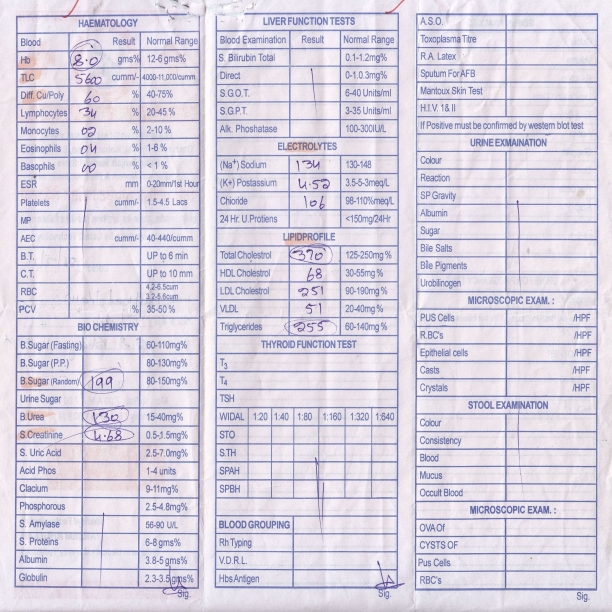 HAEMATOLOGY
Blood Result Normal Range
Hb 8.0 gms% 12-6 gms%
TLC 5600 cumm/- 4000-11,000/cumm
Diff. Cu/Poly 60 % 40-75%
Lymphocytes 34 % 20-45 %
Monocytes 02 % 2-10 %
Eosinophils 04 % 1-6 %
Basophils 00 % < 1 %
ESR mm 0-20mm/1st Hour
Platelets cumm/- 1.5-4.5 Lacs
MP
AEC cumm/- 40-440/cumm
B.T. UP to 6 min
C.T. UP to 10 mm
RBC 4.2-6.5cum
3.2-5.6cum
PCV % 35-50 %
BIO CHEMISTRY
B.Sugar (Fasting) 60-110mg%
B.Sugar (P.P.) 80-130mg%
B.Sugar (Random) 199 80-150mg%
Urine Sugar
B.Urea 130 15-40mg%
S.Creatinine 4.68 0.5-1.5mg%
S. Uric Acid 2.5-7.0mg%
Acid Phos 1-4 units
Clacium 9-11mg%
Phosphorous 2.5-4.8mg%
S. Amylase 56-90 U/L
S. Proteins 6-8 gms%
Albumin 3.8-5 gms%
Globulin 2.3-3.5gms%
Sig.
LIVER FUNCTION TESTS
Blood Examination Result Normal Range
S. Bilirubin Total 0.1-1.2mg%
Direct 0-1.0.3mg%
S.G.O.T. 6-40 Units/ml
S.G.P.T. 3-35 Units/ml
Alk. Phoshatase 100-300IU/L
ELECTROLYTES
(Na+) Sodium 134 130-148
(K+) Postassium 4.52 3.5-5-3meq/L
Chloride 106 98-110%meq/L
24 Hr. U.Protiens <150mg/24Hr
LIPIDPROFILE
Total Cholestrol 370 125-250mg %
HDL Cholestrol 68 30-55mg %
LDL Cholestrol 251 90-190mg %
VLDL 51 20-40mg %
Triglycerides 255 60-140mg %
THYROID FUNCTION TEST
T3
T4
TSH
WIDAL 1:20 1:40 1:80 1:160 1:320 1:640
STO
S.TH
SPAH
SPBH
BLOOD GROUPING
Rh Typing
V.D.R.L.
Hbs Antigen
Sig.
A.S.O.
Toxoplasma Titre
R.A. Latex
Sputum For AFB
Mantoux Skin Test
H.I.V. 1& II
If Positive must be confirmed by western blot test
URINE EXMAINATION
Colour
Reaction
SP Gravity
Albumin
Sugar
Bile Salts
Bile Pigments
Urobilinogen
MICROSCOPIC EXAM. :
PUS Cells /HPF
R.BC's /HPF
Epithelial cells /HPF
Casts /HPF
Crystals /HPF
STOOL EXAMINATION
Colour
Consistency
Blood
Mucus
Occult Blood
MICROSCOPIC EXAM. :
OVA Of
CYSTS OF
Pus Cells
RBC's
Sig.